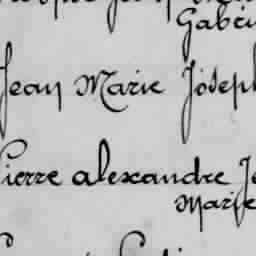 Gabri
Jean Marie Joseph
Pierre alexandre Je
Marie